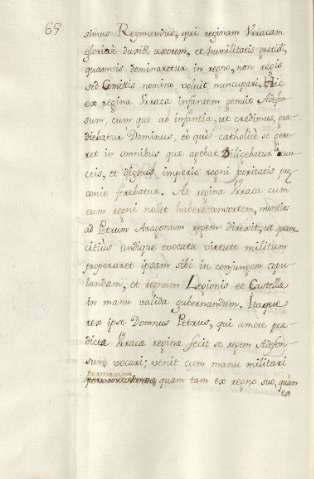 69
simus Reymundus, qui reginam Urracam
gloriae duxit uxorem, et humilitatis gratia,
quamvis dominaretur in regno, non regis
sed Comitis nomine voluit nuncupari. Hic
ex regina Urraca infantem genuit Adefon
sum, cum quo ab infantia, ut credimus, gra
diebatur Dominus, eo quod catholice se gere
ret in omnibus que agebat. Diligebatur a cunc
tis, et dignus imperio regni bonitatis pre
conio ferebatur. At regina Urraca cum
cum regni nollet habere consortem, nuntios
ad Petrum Aragonum regem direxit, ut quan
citius undique evocata virtute militum
properaret ipsam sibi in conjugem copu
landam, et regnum Legionis et Castelle
in manu valida gubernandum. Itaque
rex ipse Domnus Petrus, qui amore pre
dicte Urrace regine fecit se regem Adefon
sum vocari; venit cum manu militari
quam tam ex regno suo, quam
ex